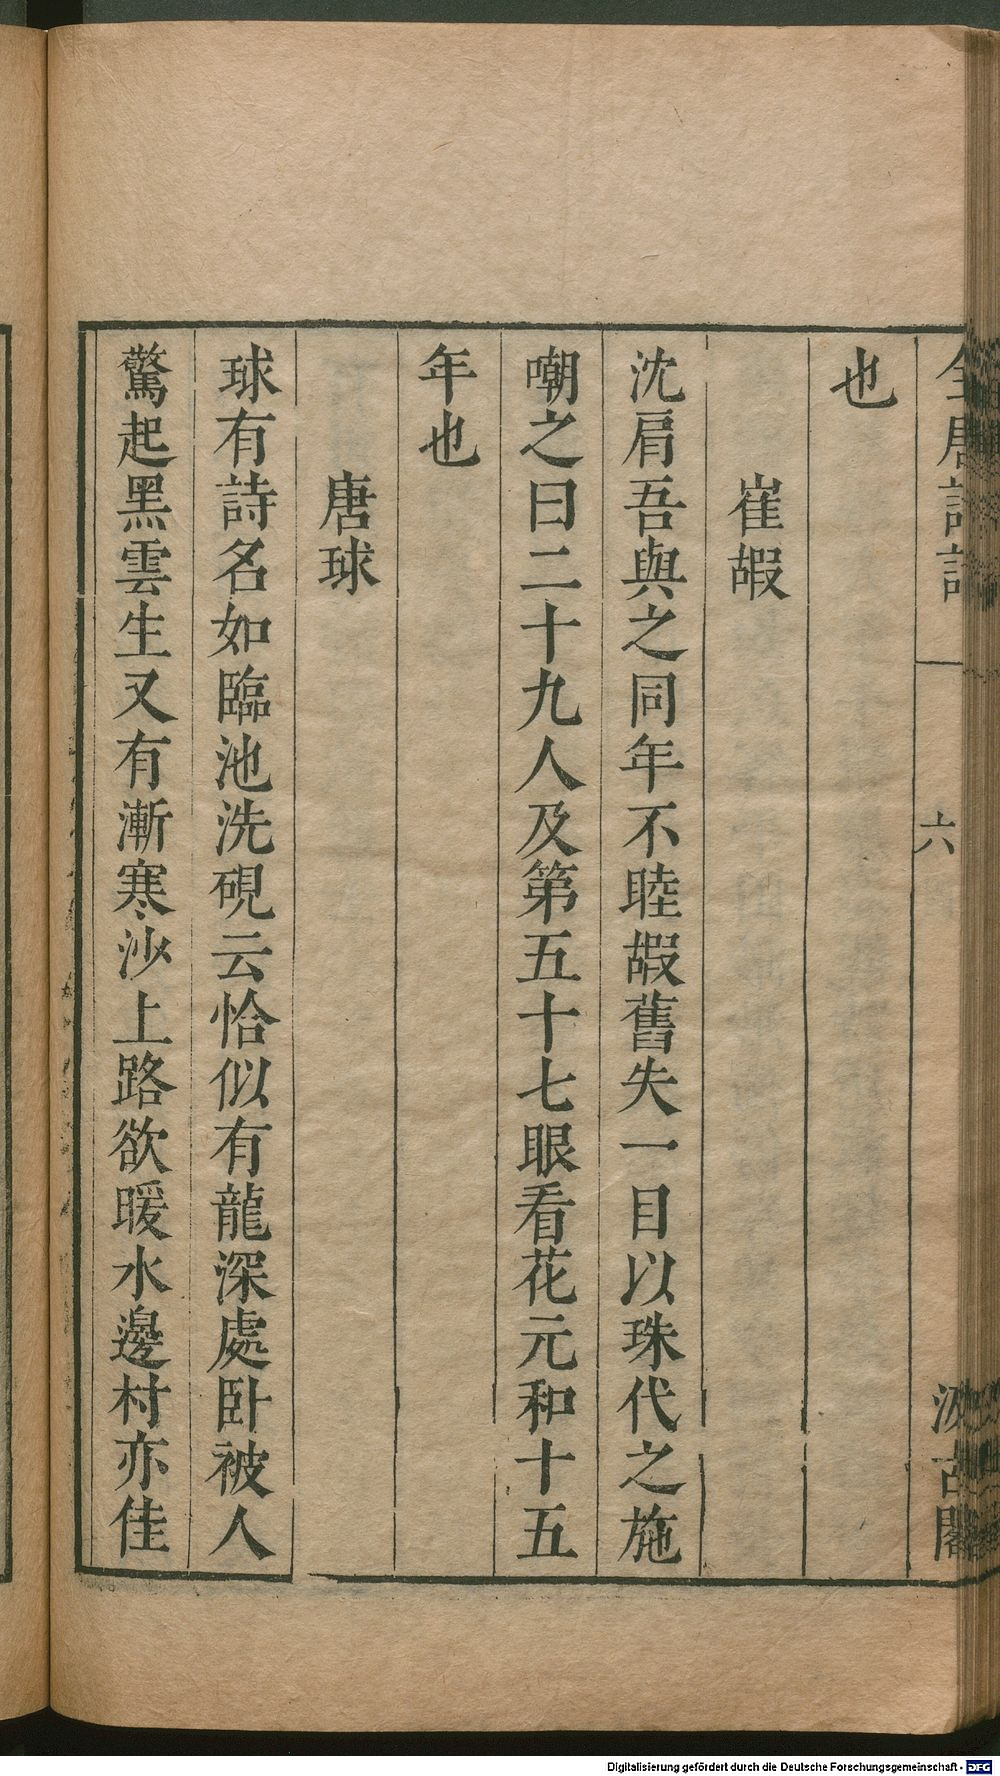 全唐詩話
六
汲古閣
也
崔嘏
沈肩吾與之同年不睦嘏舊失一目以珠代之施
嘲之曰二十九人及第五十七眼看花元和十五
年也
唐球
球有詩名如臨池洗硯云恰似有龍深處卧被人
驚起黑雲生又有漸寒沙上路欲暖水邊村亦佳
Digitalisierung gefördert durch die Deutsche Forschungsgemeinschaft - DFG